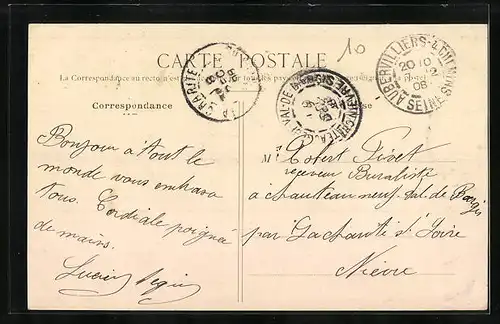 10
CARTE POSTALE
La Correspondance au recto n'est pas
Correspondance
AUBERVILLIERS-4 CHEMINS
20 10
12
06
SEINE
LA CHARITE
Bonjour a tout le
monde vous embrasse
tous. Cordiale poignée
de mains.
Lucien
Mr Robert Pivet
receveur Buraliste
a chauteau neuf val de Bargis
par La charité s/ Loire
Nièvre